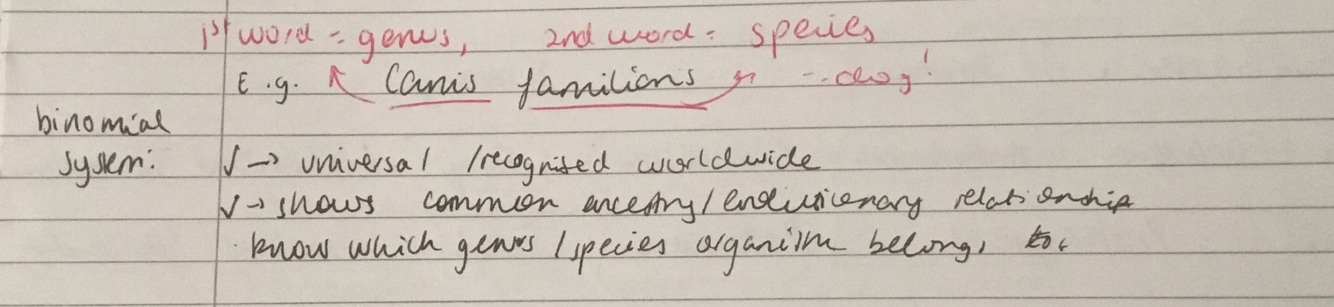 1st word = genus, 2nd word = species
E.g. Canis familiaris --dog!
binomial
system: √→ universal /recognised worldwide
√→ shows common ancestry/evolutionary relationship
· know which genus /species organism belongs to.